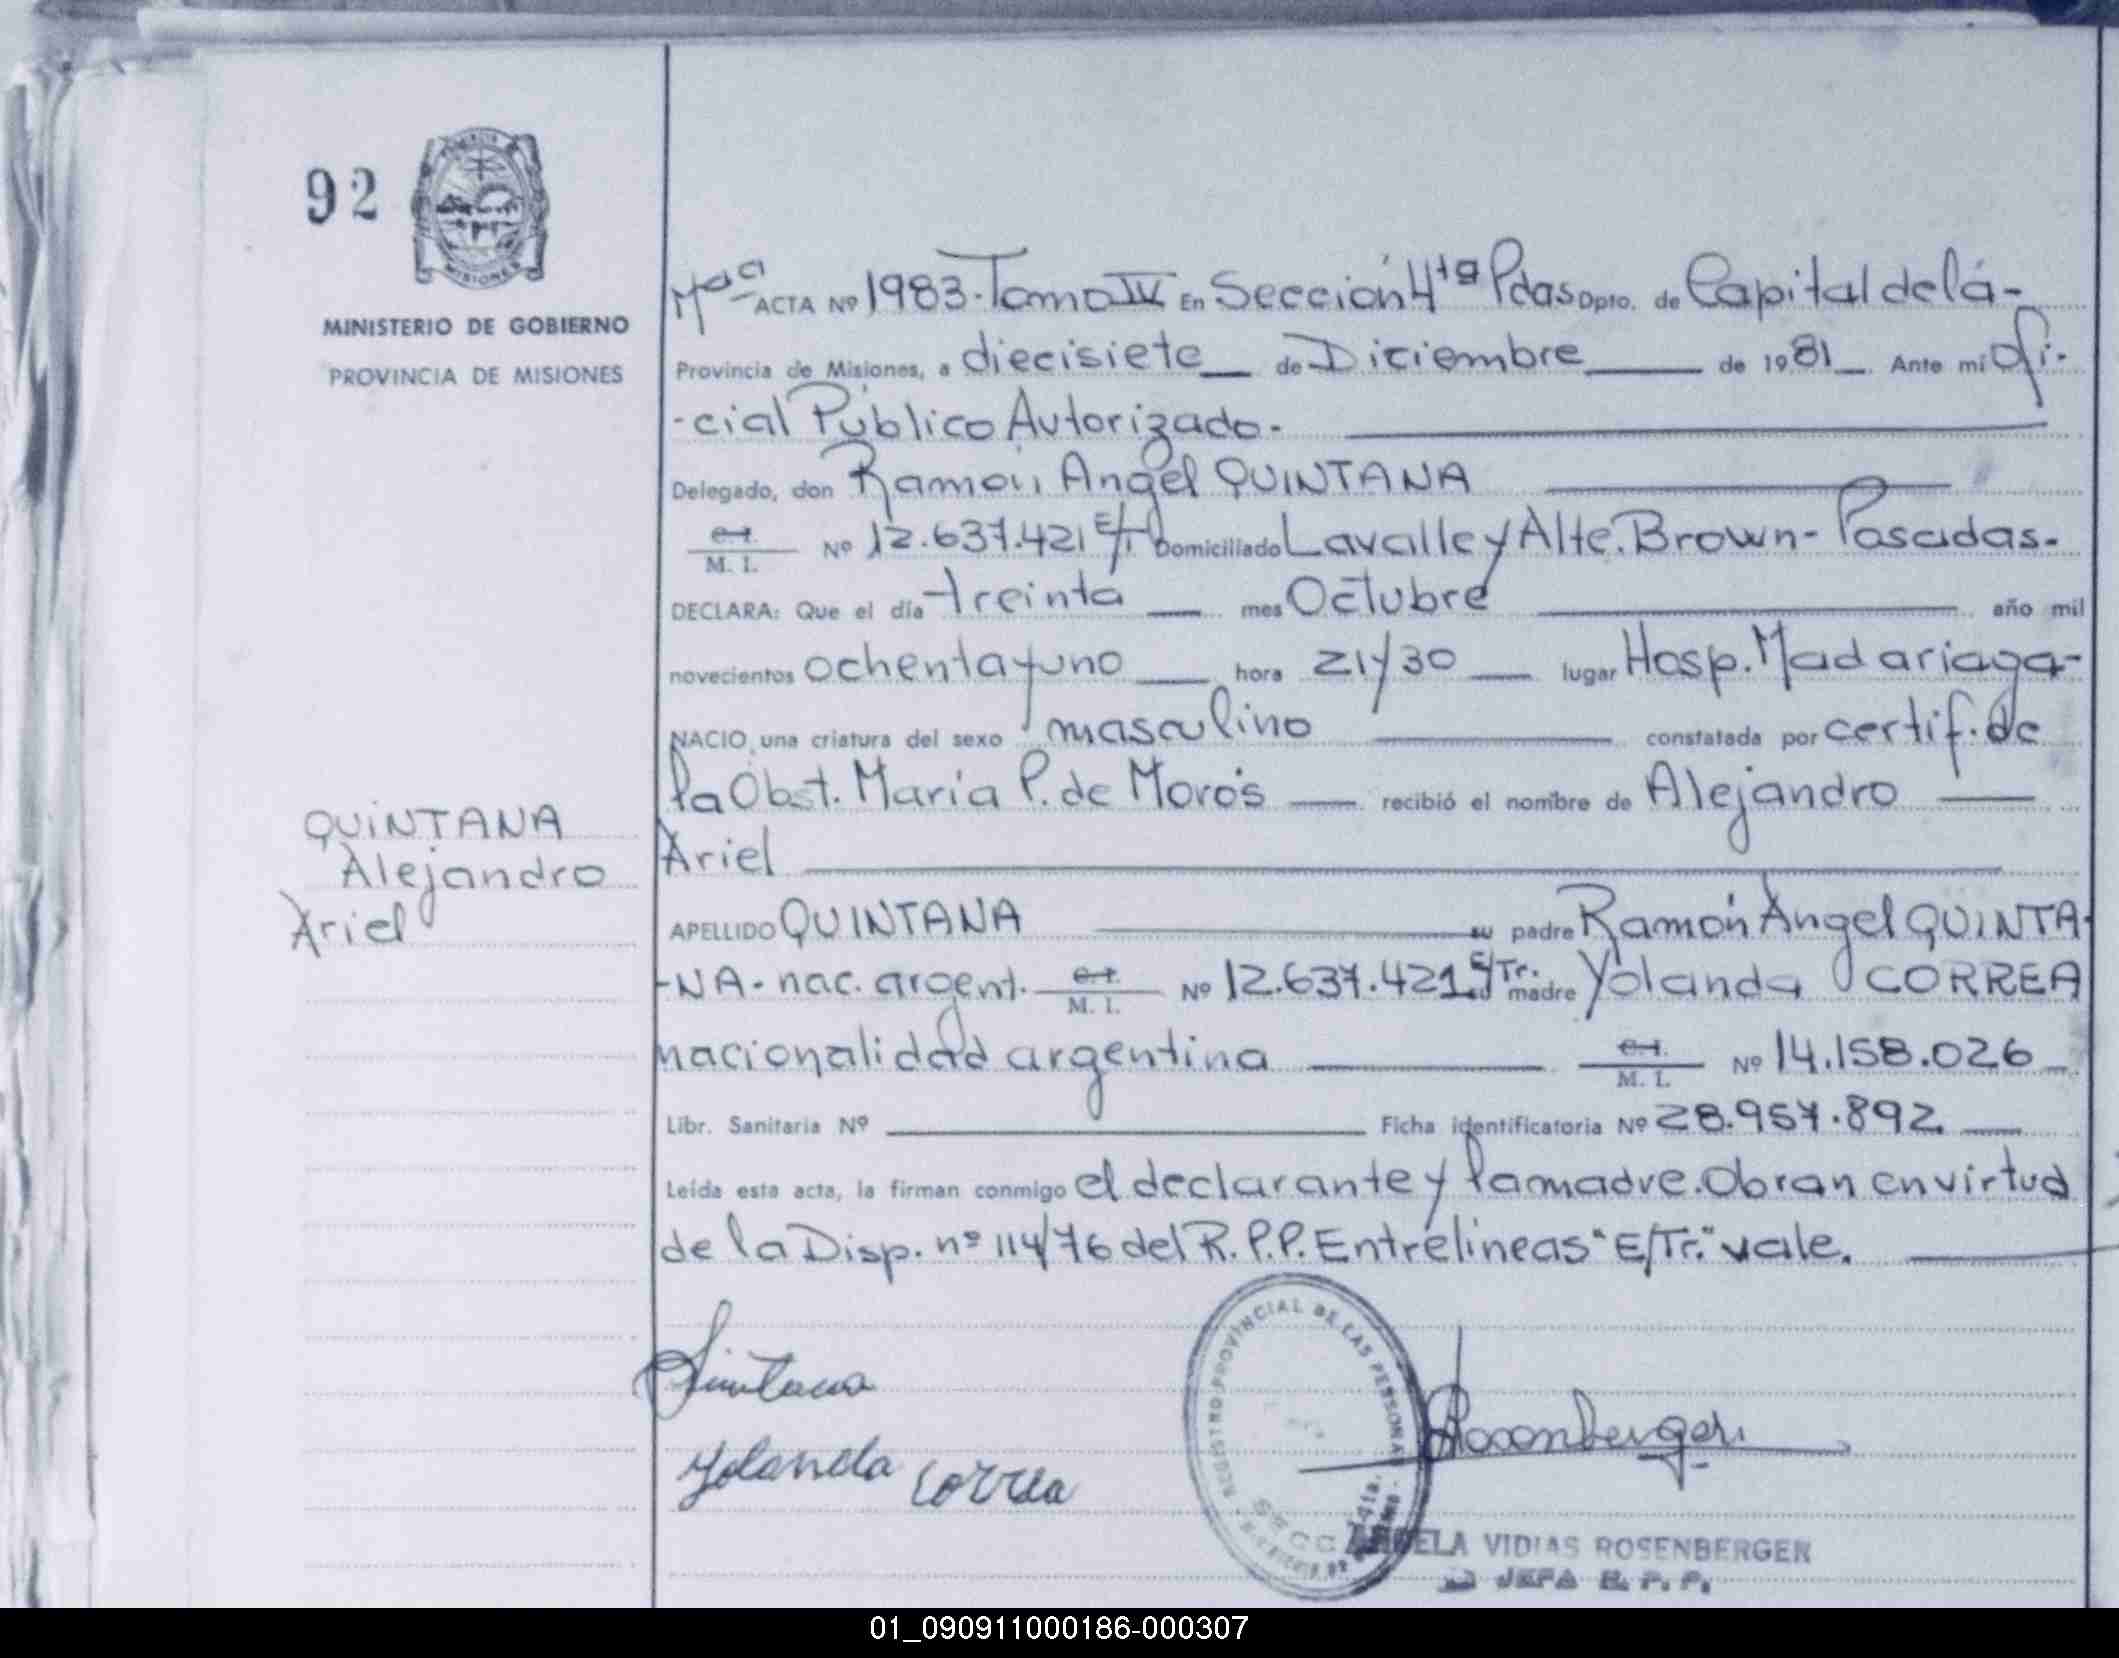 92
MISIONES
MINISTERIO DE GOBIERNO
PROVINCIA DE MISIONES
ACTA Nº 1983. Tomo IV En Sección 4ta Pdas Dpto. de Capital de la-
Provincia de Misiones, a diecisiete de Diciembre de 1981 Ante mi Ofi-
-cial Público Autorizado.
Delegado, don Ramón Angel QUINTANA
C.I. M. I. Nº 12.637.421 E/Tr Domiciliado Lavalle y Alte. Brown- Posadas.
DECLARA: Que el día treinta mes Octubre año mil
novecientos ochenta y uno hora 21 y 30 lugar Hosp. Madariaga-
NACIO una criatura del sexo masculino constatada por certif. de
la Obst. María P. de Morós recibió el nombre de Alejandro
Ariel
APELLIDO QUINTANA su padre Ramón Angel QUINTA-
-NA. nac. argent. C.I. M. I. Nº 12.637.421 E/Tr. su madre Yolanda CORREA
nacionalidad argentina C.I. M. I. Nº 14.158.026
Libr. Sanitaria Nº Ficha identificatoria Nº 28.957.892
Leída esta acta, la firman conmigo el declarante y la madre. Obran en virtud
de la Disp. nº 114/76 del R.P.P. Entrelineas "E/Tr." vale.
QUINTANA
Alejandro
Ariel
Quintana
Yolanda Correa
REGISTRO PROVINCIAL DE LAS PERSONAS
4ta.
Rosenberger
VIDIAS ROSENBERGER
JEFA R. P. P.
01_090911000186-000307